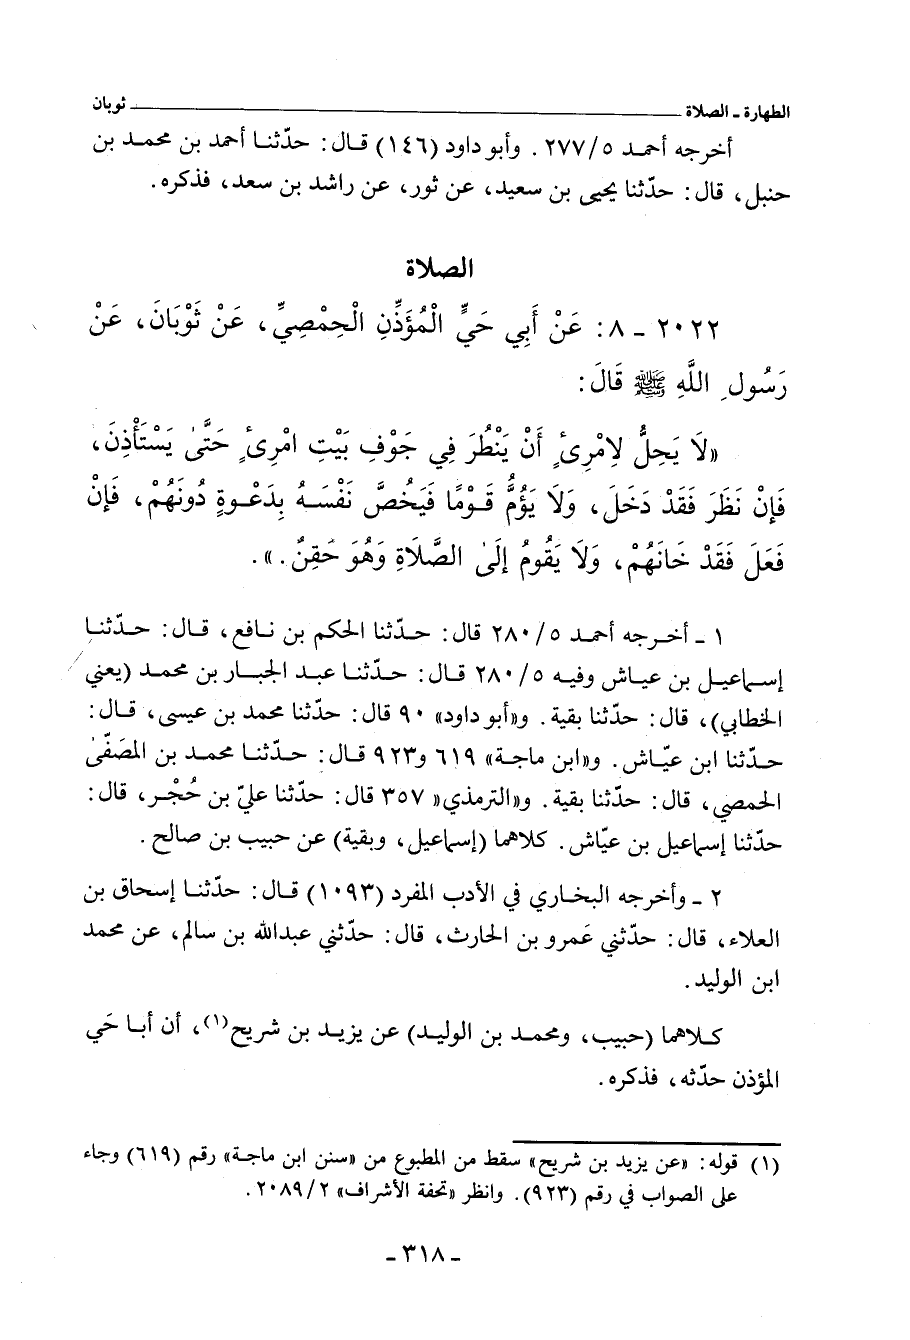 الطهارة ـ الصلاة ثوبان
أخرجه أحمد ٢٧٧/٥ . وأبو داود (١٤٦) قال : حدّثنا أحمد بن محمد بن
حنبل ، قال : حدّثنا يحيى بن سعيد ، عن ثور ، عن راشد بن سعد ، فذكره .
الصلاة
٢٠٢٢ ـ ٨ : عَنْ أَبِي حَيٍّ الْمُؤَذِّنِ الْحِمْصِيِّ ، عَنْ ثَوْبَانَ ، عَنْ
رَسُولِ اللَّهِ ﷺ قَالَ :
«لَا يَحِلُّ لِامْرِئٍ أَنْ يَنْظُرَ فِي جَوْفِ بَيْتِ امْرِئٍ حَتَّىٰ يَسْتَأْذِنَ ،
فَإِنْ نَظَرَ فَقَدْ دَخَلَ ، وَلَا يَؤُمُّ قَوْمًا فَيَخُصَّ نَفْسَهُ بِدَعْوةٍ دُونَهُمْ ، فَإِنْ
فَعَلَ فَقَدْ خَانَهُمْ ، وَلَا يَقُومُ إِلَىٰ الصَّلَاةِ وَهُوَ حَقِنٌ . » .
١ ـ أخرجه أحمد ٢٨٠/٥ قال : حدّثنا الحكم بن نافع ، قال : حدّثنا
إسماعيل بن عياش وفيه ٢٨٠/٥ قال : حدّثنا عبد الجبار بن محمد (يعني
الخطابي) ، قال : حدّثنا بقية . و«أبو داود» ٩٠ قال : حدّثنا محمد بن عيسى ، قال :
حدّثنا ابن عيّاش . و«ابن ماجة» ٦١٩ و٩٢٣ قال : حدّثنا محمد بن المصَفّىٰ
الحمصي ، قال : حدّثنا بقية . و«الترمذي» ٣٥٧ قال : حدّثنا عليّ بن حُجْر ، قال :
حدّثنا إسماعيل بن عيّاش . كلاهما (إسماعيل ، وبقية) عن حبيب بن صالح .
٢ ـ وأخرجه البخاري في الأدب المفرد (١٠٩٣) قال : حدّثنا إسحاق بن
العلاء ، قال : حدّثني عَمرو بن الحارث ، قال : حدّثني عبدالله بن سالم ، عن محمد
ابن الوليد .
كلاهما (حبيب ، ومحمد بن الوليد) عن يزيد بن شريح(١) ، أن أبا حَي
المؤذن حدّثه ، فذكره .
(١) قوله : «عن يزيد بن شريح» سقط من المطبوع من «سنن ابن ماجة» رقم (٦١٩) وجاء
على الصواب في رقم (٩٢٣) . وانظر «تحفة الأشراف» ٢٠٨٩/٢ .
ـ ٣١٨ ـ